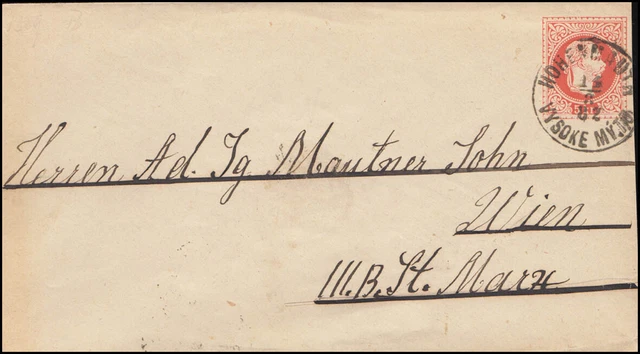 HOHENMAUTH
12
3
82
VYSOKE MYTO
Herren Ad. Ig. Mautner Sohn
Wien
III. B. St. Marx